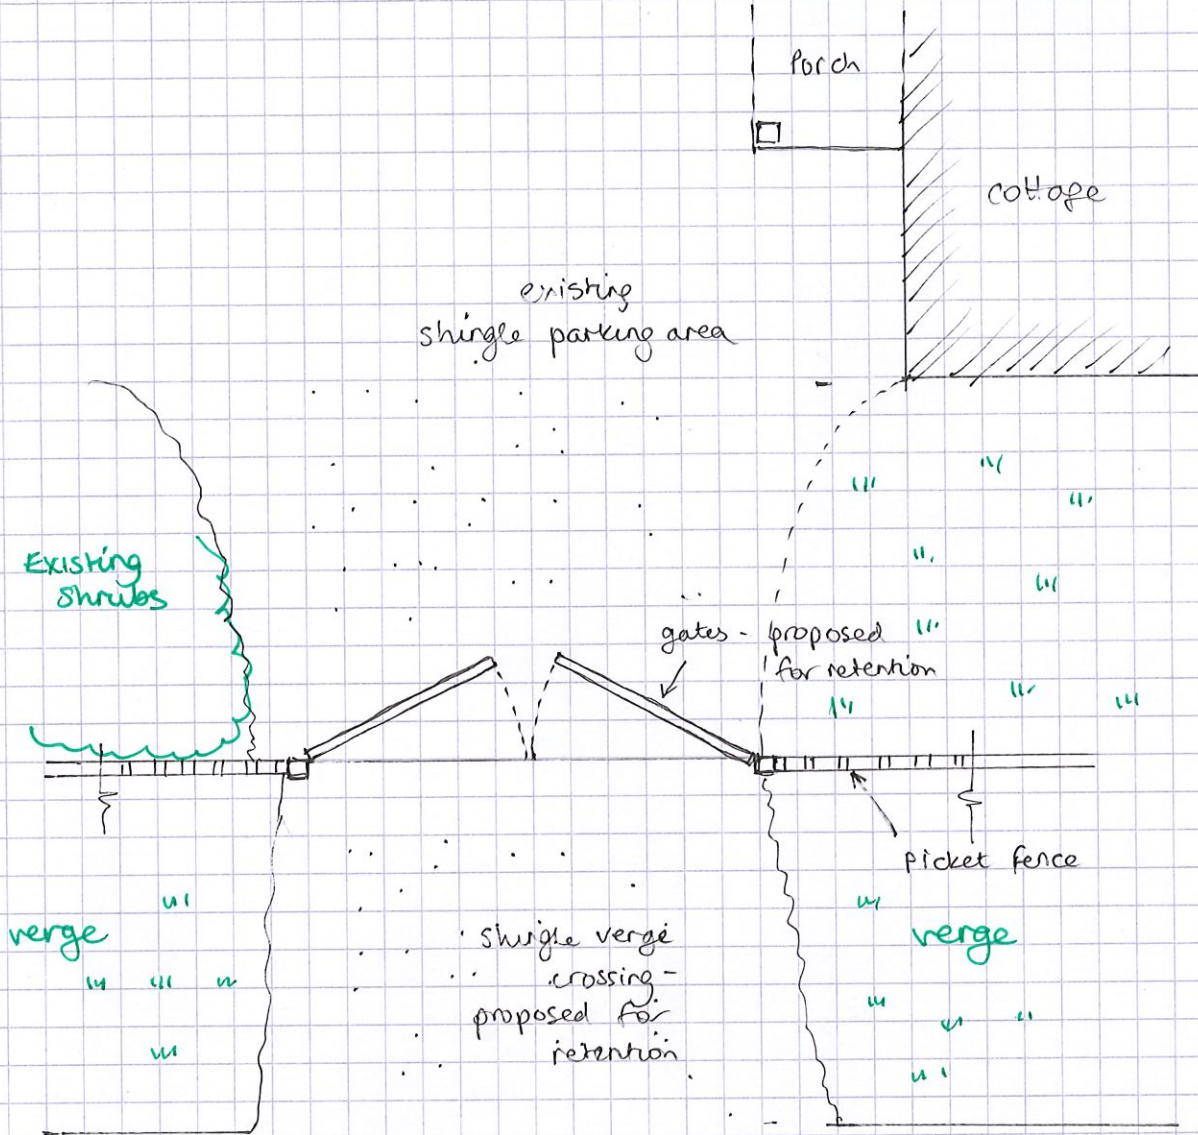 Porch
cottage
existing
shingle parking area
Existing
shrubs
gates - proposed
for retention
picket fence
verge
shingle verge
crossing -
proposed for
retention
verge